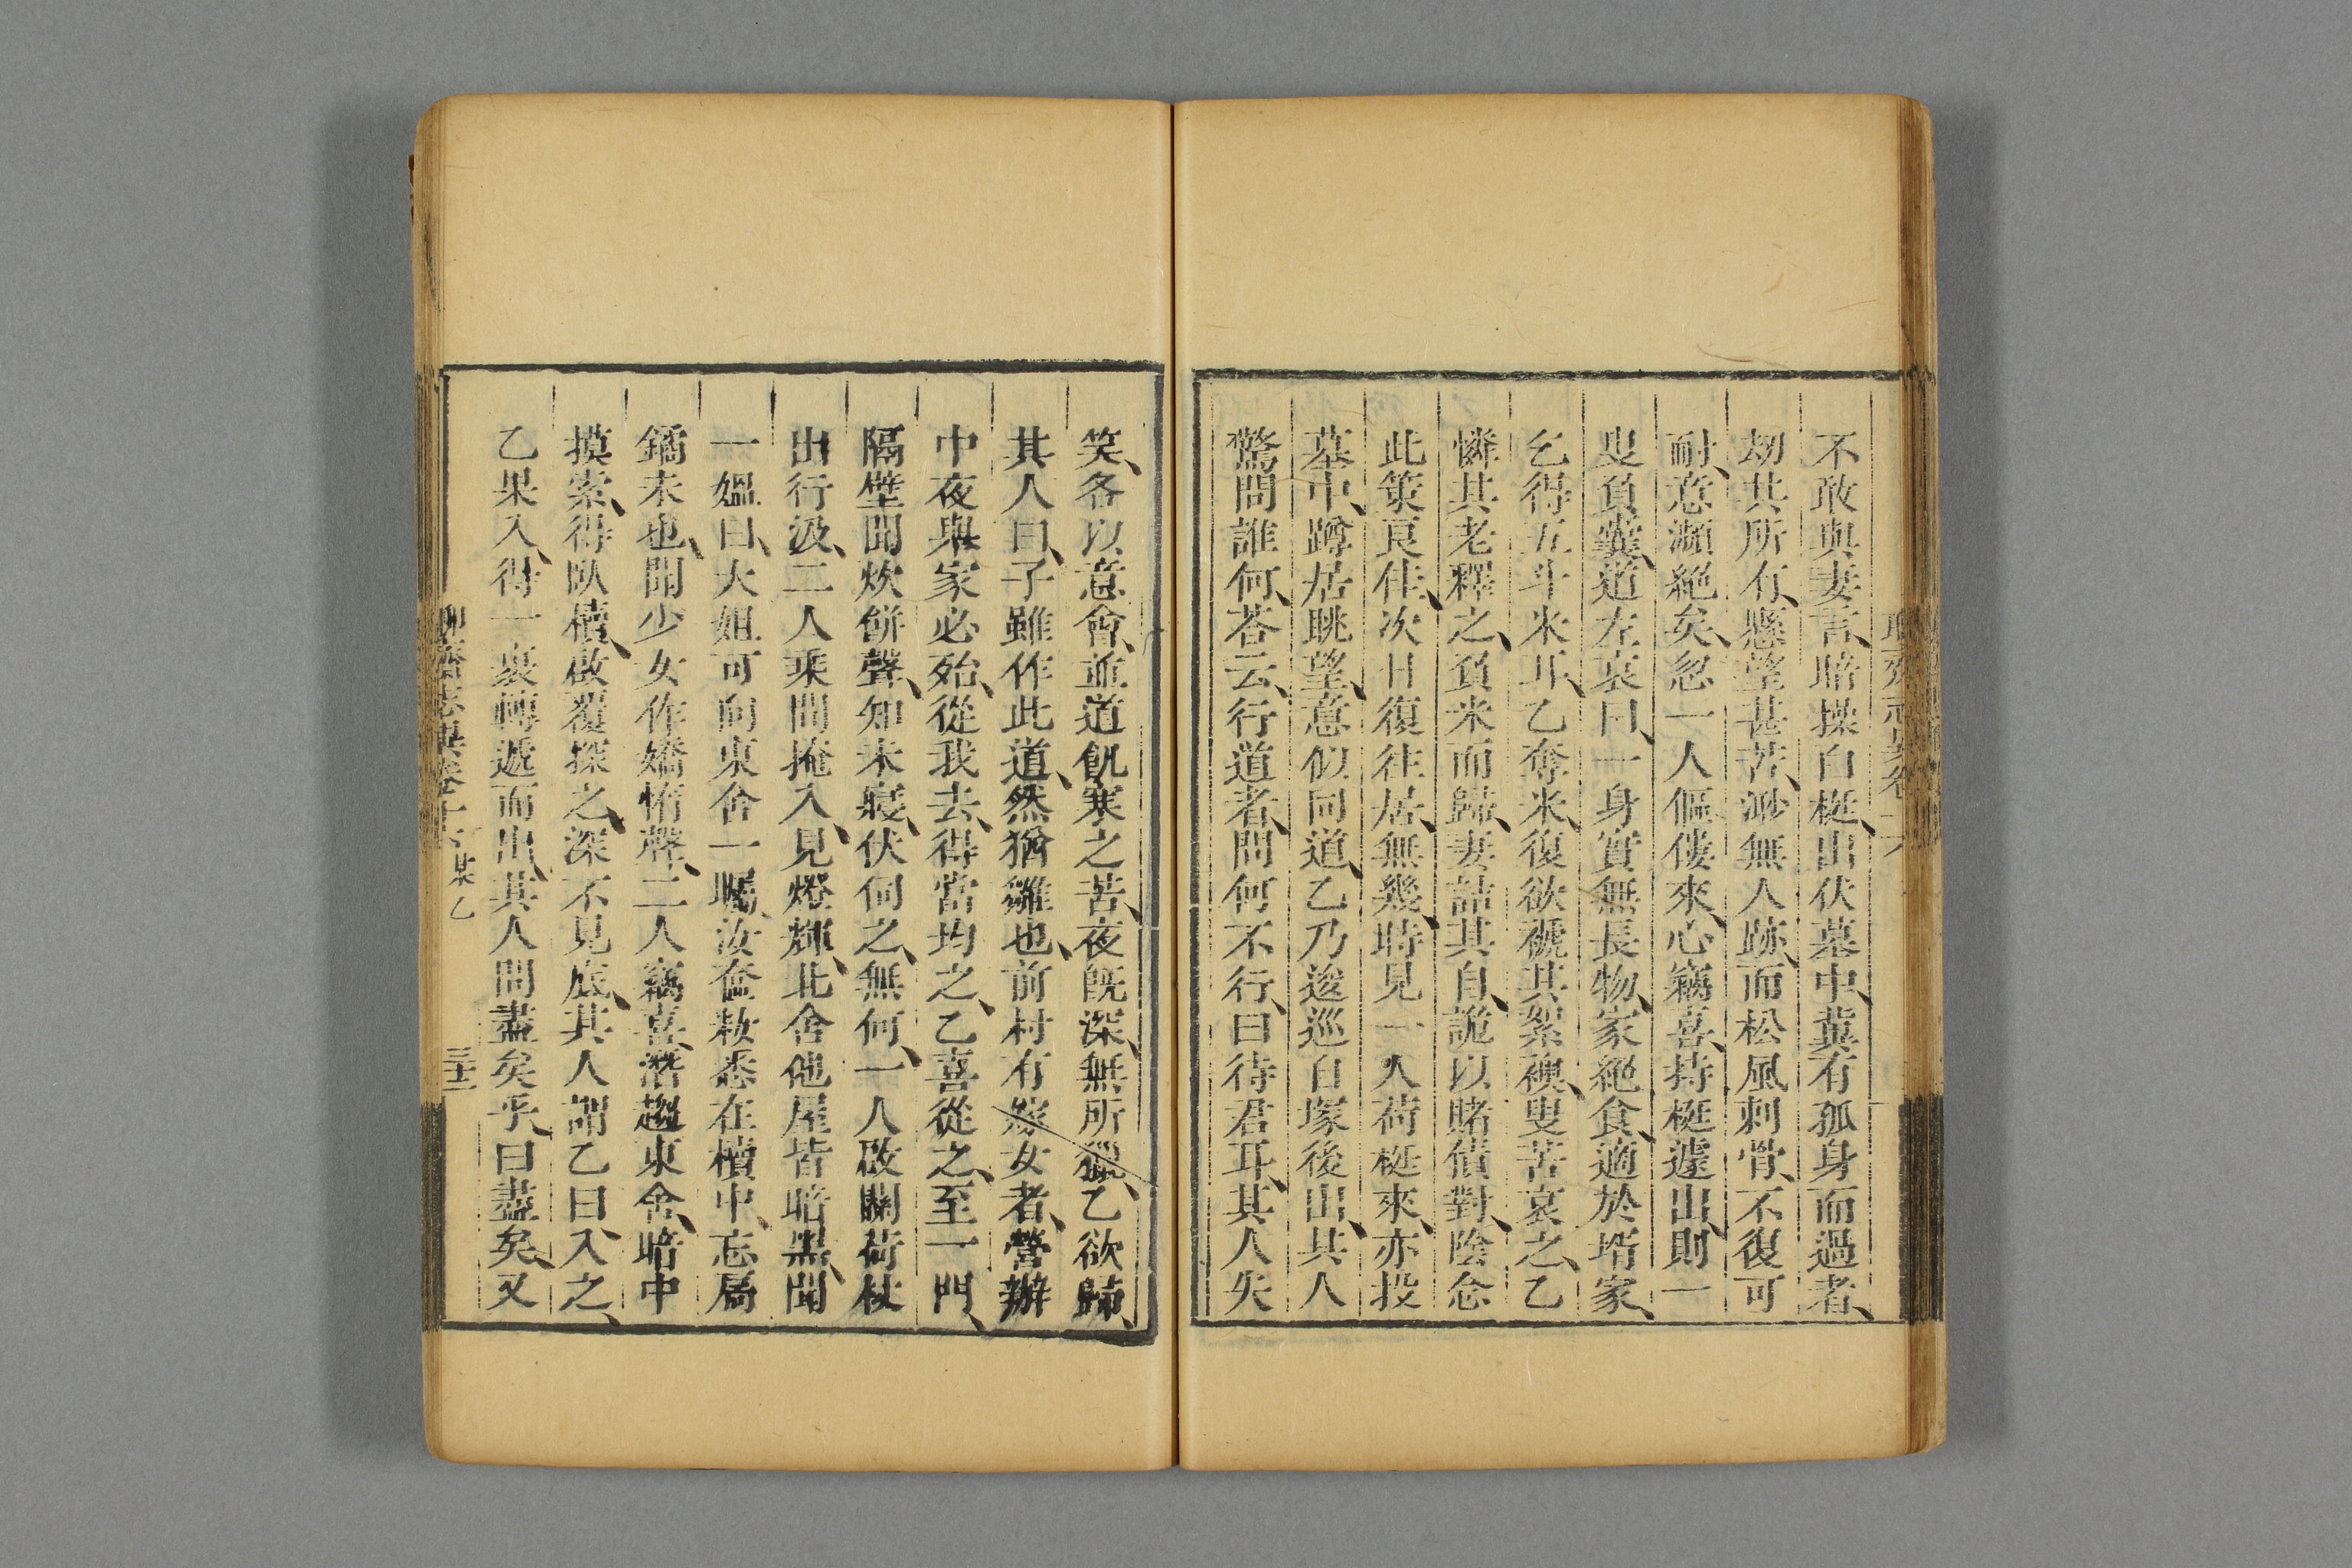 不敢與妻言、暗操白梃、出伏墓中、冀有孤身而過者、
刼其所有、懸望甚苦、渺無人跡、而松風刺骨、不復可
耐、意瀕絕矣、忽一人傴僂來、心竊喜、持梃遽出、則一
叟負囊、道左哀曰、一身實無長物、家絕食、適於壻家、
乞得五斗米耳、乙奪米、復欲褫其絮襖、叟苦哀之、乙
憐其老、釋之、負米而歸、妻詰其自、詭以賭債對、陰念
此策良佳、次日復往、居無幾、時見一人荷梃來、亦投
墓中、蹲居眺望、意似同道、乙乃逡巡自塚後出、其人
驚問誰何、荅云、行道者、問何不行、曰待君耳、其人失
笑、各以意會、並道飢寒之苦、夜既深、無所獵、乙欲歸、
其人曰、子雖作此道、然猶雛也、前村有嫁女者、營辦
中夜、舉家必殆、從我去、得當均之、乙喜從之、至一門、
隔壁聞炊餅聲、知未寢、伏伺之、無何、一人啟關荷杖
出行汲、二人乘間掩入、見燈輝、北舍他屋皆暗黑、聞
一媼曰、大姐可向東舍一矚、汝奩粧悉在櫝中、忘扃
鐍未也、聞少女作嬌惰聲、二人竊喜、潛趨東舍、暗中
摸索、得臥櫝、啟覆探之、深不見底、其人謂乙曰、入之、
乙果入、得一裹轉遞而出、其人問盡矣乎、曰盡矣、又
聊齋志異卷十六 某乙 三十二